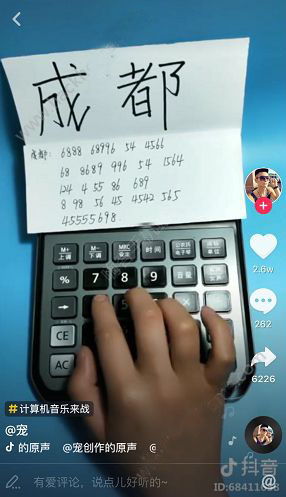 成都
成都: 6888 68996 54 4566
68 8689 996 54 1564
124 4 55 86 689
8 98 56 45 4542 565
45555698.
M+ M- MRC 时间 公农历
上调 下调 电子琴 单位
% 7 8 9 音量
→
CE
AC
2.6w
262
6226
#计算机音乐来战
@宠
的原声 @宠创作的原声
抖音
有爱评论，说点儿好听的~ @